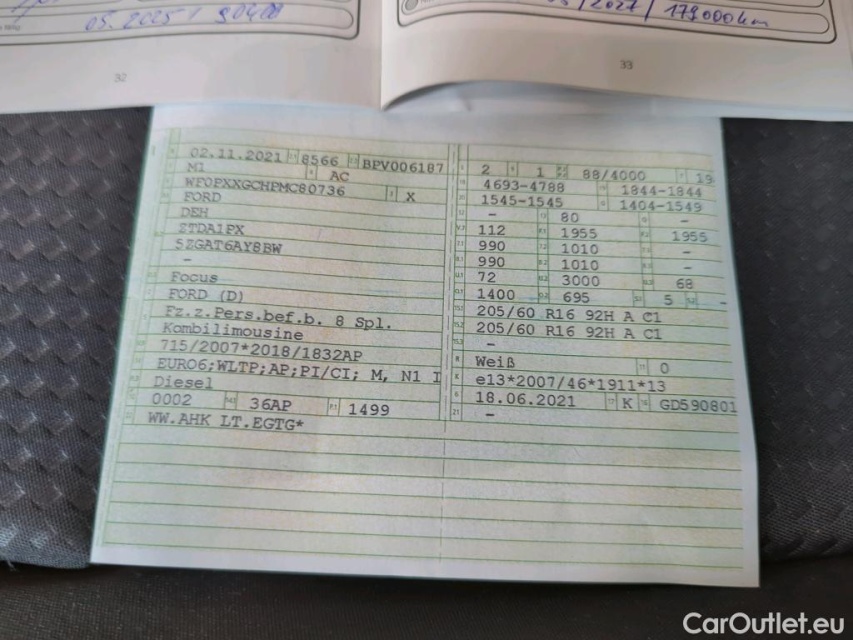 05.2025 /
/2027 / 179000km
32
33
02.11.2021 8566 BPV006187
M1 AC
WF0PXXGCHPMC80736 X
FORD
DEH
ZTDA1PX
5ZGAT6AY8BW
-
Focus
FORD (D)
Fz.z.Pers.bef.b. 8 Spl.
Kombilimousine
715/2007*2018/1832AP
EURO6;WLTP;AP;PI/CI; M, N1 I
Diesel
0002 36AP 1499
WW.AHK LT.EGTG*
2 1 88/4000 19
4693-4788 1844-1844
1545-1545 1404-1549
- 80 -
112 1955 1955
990 1010 -
990 1010 -
72 3000 68
1400 695 5 -
205/60 R16 92H A C1
205/60 R16 92H A C1
-
Weiß 0
e13*2007/46*1911*13
18.06.2021 K GD590801
-
CarOutlet.eu